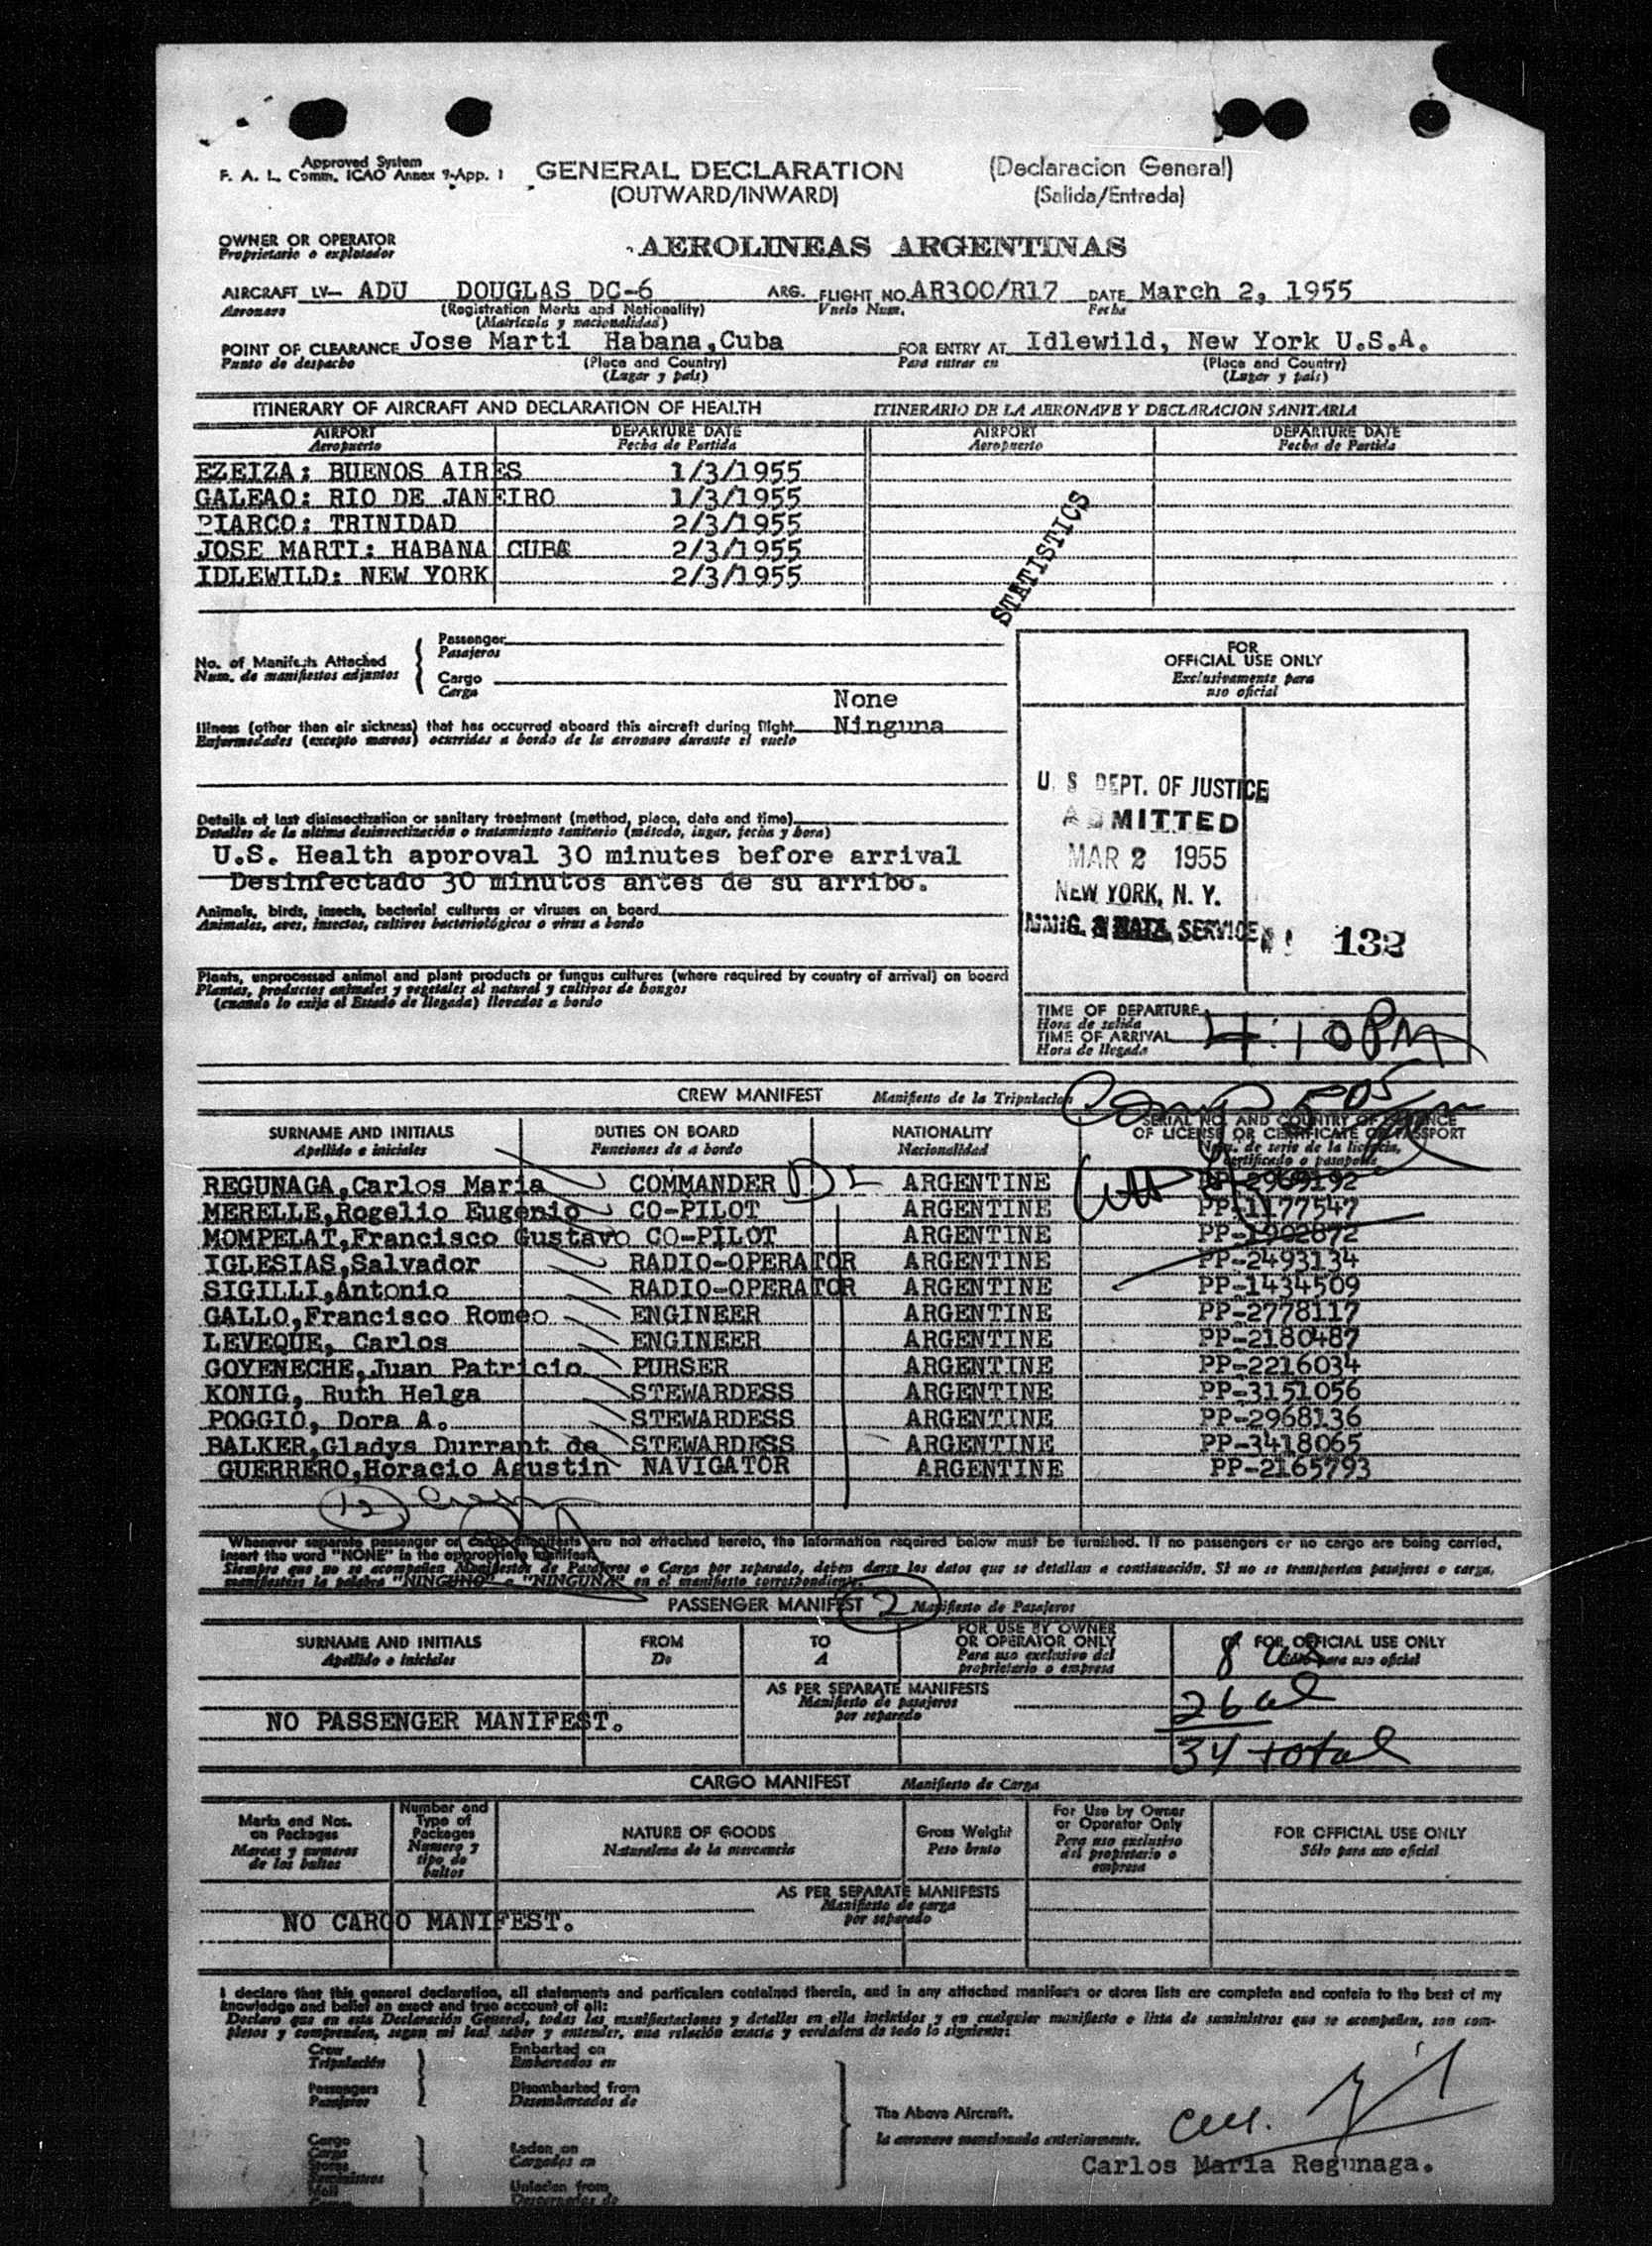 Approved System
F. A. L. Comm. ICAO Annex 9-App. 1
GENERAL DECLARATION
(OUTWARD/INWARD)
(Declaracion General)
(Salida/Entrada)
OWNER OR OPERATOR
Proprietario o explotador
AEROLINEAS ARGENTINAS
AIRCRAFT LV- ADU DOUGLAS DC-6 ARG. FLIGHT NO. AR300/R17 DATE March 2, 1955
Aeronave (Registration Marks and Nationality) Vuelo Num. Fecha
(Matricula y nacionalidad)
POINT OF CLEARANCE Jose Marti Habana,Cuba FOR ENTRY AT Idlewild, New York U.S.A.
Punto de despacho (Place and Country) Para entrar en (Place and Country)
(Lugar y país) (Lugar y país)
ITINERARY OF AIRCRAFT AND DECLARATION OF HEALTH ITINERARIO DE LA AERONAVE Y DECLARACION SANITARIA
AIRPORT DEPARTURE DATE AIRPORT DEPARTURE DATE
Aeropuerto Fecha de Partida Aeropuerto Fecha de Partida
EZEIZA: BUENOS AIRES 1/3/1955
GALEAO: RIO DE JANEIRO 1/3/1955
PIARCO: TRINIDAD 2/3/1955
JOSE MARTI: HABANA CUBA 2/3/1955
IDLEWILD: NEW YORK 2/3/1955
STATISTICS
No. of Manifests Attached
Num. de manifiestos adjuntos
Passenger
Pasajeros
Cargo
Carga
None
Illness (other than air sickness) that has occurred aboard this aircraft during flight Ninguna
Enfermedades (excepto mareos) ocurridas a bordo de la aeronave durante el vuelo
Details of last disinsectization or sanitary treatment (method, place, date and time)
Detalles de la ultima desinsectización o tratamiento sanitario (método, lugar, fecha y hora)
U.S. Health approval 30 minutes before arrival
Desinfectado 30 minutos antes de su arribo.
Animals, birds, insects, bacterial cultures or viruses on board
Animales, aves, insectos, cultivos bacteriológicos o virus a bordo
Plants, unprocessed animal and plant products or fungus cultures (where required by country of arrival) on board
Plantas, productos animales y vegetales al natural y cultivos de hongos
(cuando lo exija el Estado de llegada) llevados a bordo
FOR
OFFICIAL USE ONLY
Exclusivamente para
uso oficial
U. S DEPT. OF JUSTICE
ADMITTED
MAR 2 1955
NEW YORK, N. Y.
IMMIG. & NATZ. SERVICE
132
TIME OF DEPARTURE
Hora de salida
TIME OF ARRIVAL 4:10 PM
Hora de llegada
CREW MANIFEST Manifiesto de la Tripulacion
Comp 505
SURNAME AND INITIALS DUTIES ON BOARD NATIONALITY SERIAL NO. AND COUNTRY OF ISSUANCE
OF LICENSE OR CERTIFICATE OR PASSPORT
Apellido e iniciales Funciones de a bordo Nacionalidad Num. de serie de la licencia,
certificado o pasaporte
REGUNAGA,Carlos Maria COMMANDER ARGENTINE PP-2969192
MERELLE,Rogelio Eugenio CO-PILOT ARGENTINE PP-1177547
MOMPELAT,Francisco Gustavo CO-PILOT ARGENTINE PP-1902872
IGLESIAS,Salvador RADIO-OPERATOR ARGENTINE PP-2493134
SIGILLI,Antonio RADIO-OPERATOR ARGENTINE PP-1434509
GALLO,Francisco Romeo ENGINEER ARGENTINE PP-2778117
LEVEQUE, Carlos ENGINEER ARGENTINE PP-2180487
GOYENECHE,Juan Patricio PURSER ARGENTINE PP-2216034
KONIG, Ruth Helga STEWARDESS ARGENTINE PP-3151056
POGGIO, Dora A. STEWARDESS ARGENTINE PP-2968136
BALKER,Gladys Durrant de STEWARDESS ARGENTINE PP-3418065
GUERRERO,Horacio Agustin NAVIGATOR ARGENTINE PP-2165793
12 Crew
Whenever separate passenger or cargo manifests are not attached hereto, the information required below must be furnished. If no passengers or no cargo are being carried,
insert the word "NONE" in the appropriate manifest.
Siempre que no se acompañen Manifiestos de Pasajeros o Carga por separado, deben darse los datos que se detallan a continuación. Si no se transportan pasajeros o carga,
manifiestese la palabra "NINGUNO" o "NINGUNA" en el manifiesto correspondiente.
PASSENGER MANIFEST 2 Manifiesto de Pasajeros
SURNAME AND INITIALS FROM TO FOR USE BY OWNER
OR OPERATOR ONLY FOR OFFICIAL USE ONLY
Apellido e iniciales De A Para uso exclusivo del
propietario o empresa Sólo para uso oficial
8 us
AS PER SEPARATE MANIFESTS
Manifiesto de pasajeros
por separado
26 al
NO PASSENGER MANIFEST.
34 total
CARGO MANIFEST Manifiesto de Carga
Marks and Nos.
on Packages
Marcas y numeros
de los bultos
Number and
Type of
Packages
Numero y
tipo de
bultos
NATURE OF GOODS
Naturaleza de la mercancia
Gross Weight
Peso bruto
For Use by Owner
or Operator Only
Para uso exclusivo
del propietario o
empresa
FOR OFFICIAL USE ONLY
Sólo para uso oficial
AS PER SEPARATE MANIFESTS
Manifiesto de carga
por separado
NO CARGO MANIFEST.
I declare that this general declaration, all statements and particulars contained therein, and in any attached manifests or stores lists are complete and contain to the best of my
knowledge and belief an exact and true account of all:
Declaro que en esta Declaración General, todas las manifestaciones y detalles en ella incluidos y en cualquier manifiesto o lista de suministros que se acompañen, son com-
pletos y comprenden, segun mi leal saber y entender, una relación exacta y verdadera de todo lo siguiente:
Crew
Tripulación
Embarked on
Embarcados en
Passengers
Pasajeros
Disembarked from
Desembarcados de
Cargo
Carga
Stores
Suministros
Mail
Laden on
Cargados en
Unladen from
Descargados de
The Above Aircraft.
la aeronave mencionada anteriormente.
Carlos Maria Regunaga.